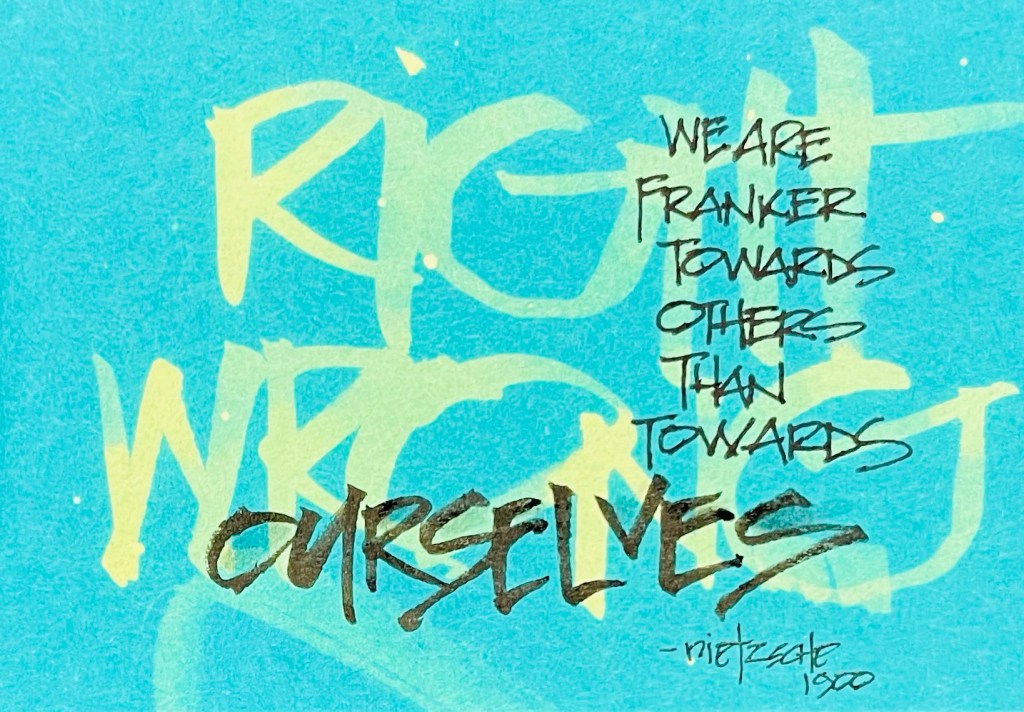 RiGHT
WRONG
WE ARE
FRANKER
TOWARDS
OTHERS
THAN
TOWARDS
OURSELVES
- nietzsche
1900